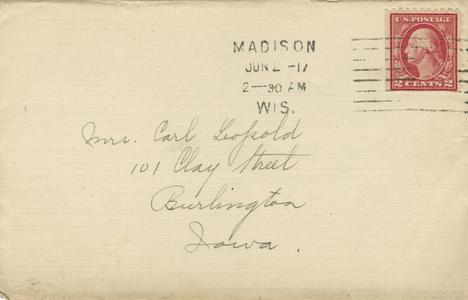 U.S. POSTAGE
2 CENTS 2
MADISON
JUN 2 -17
2—30 AM
WIS.
Mrs. Carl Leopold
101 Clay Street
Burlington
Iowa.